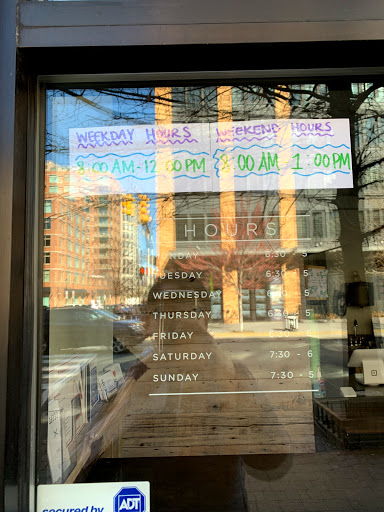 WEEKDAY HOURS WEEKEND HOURS
8:00 AM-12:00 PM 8:00 AM-1:00PM
HOURS
MONDAY 6:30 - 5
TUESDAY 6:30 - 5
WEDNESDAY 6:30 - 5
THURSDAY 6:30 - 5
FRIDAY
SATURDAY 7:30 - 6
SUNDAY 7:30 - 5
secured by ADT